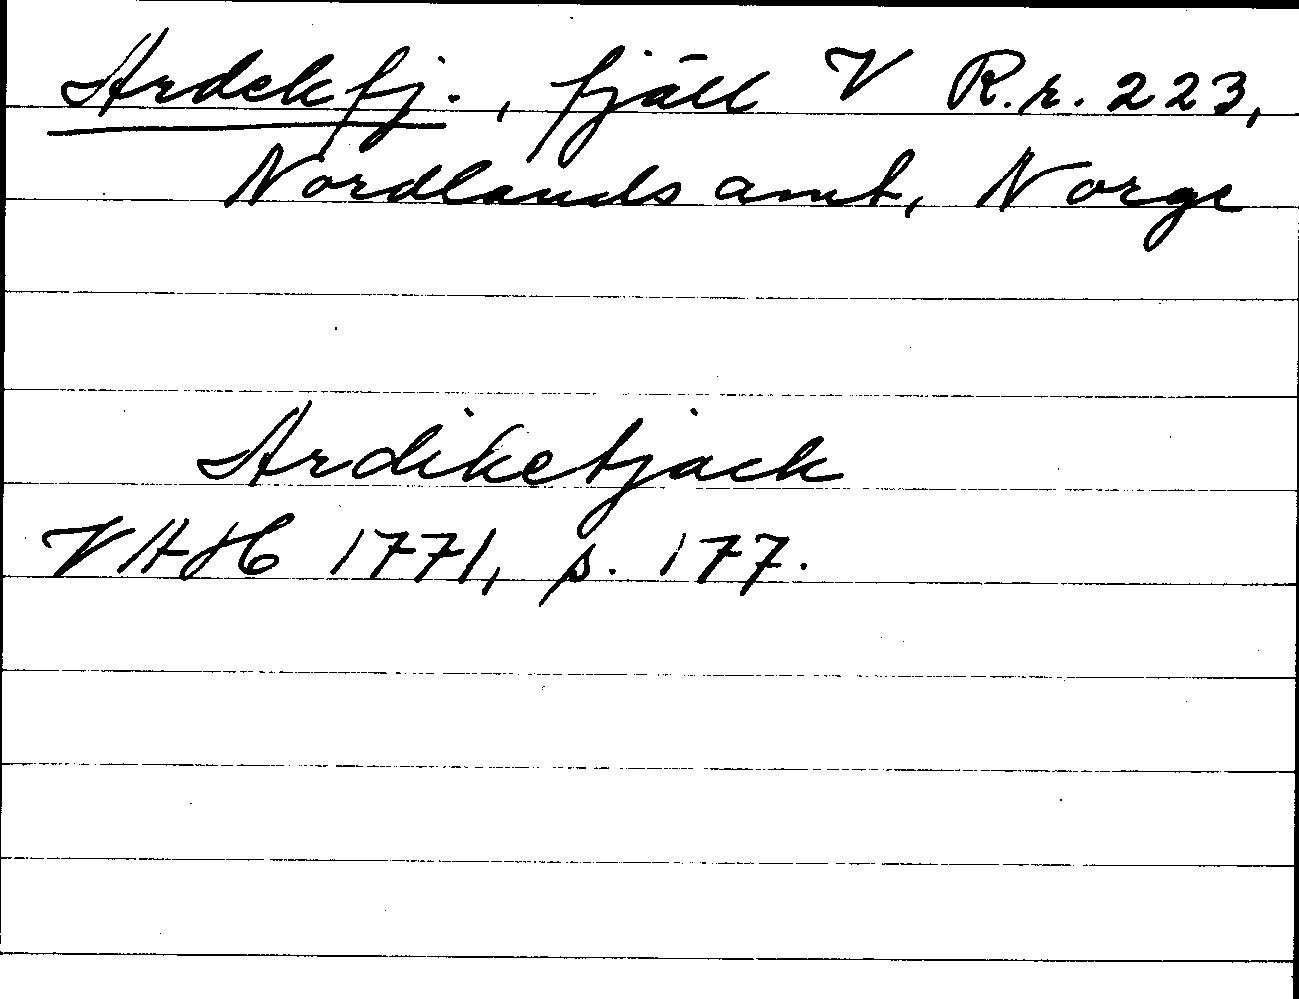 Ardekfj., fjäll V R.r. 223,
Nordlands amt, Norge
Ardiketjack
VAH 1771, s. 177.